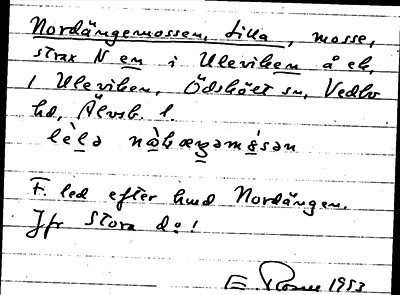 Nordängemossen, Lilla, mosse,
strax N en i Uleviken å ek.
/ Uleviken, Ödskölt sn, Vedbo
hd, Älvsb. l.
lèlə nòhæŋəmósən
F. led efter hmd Nordängen.
Jfr Stora do!
E Rosell 1953